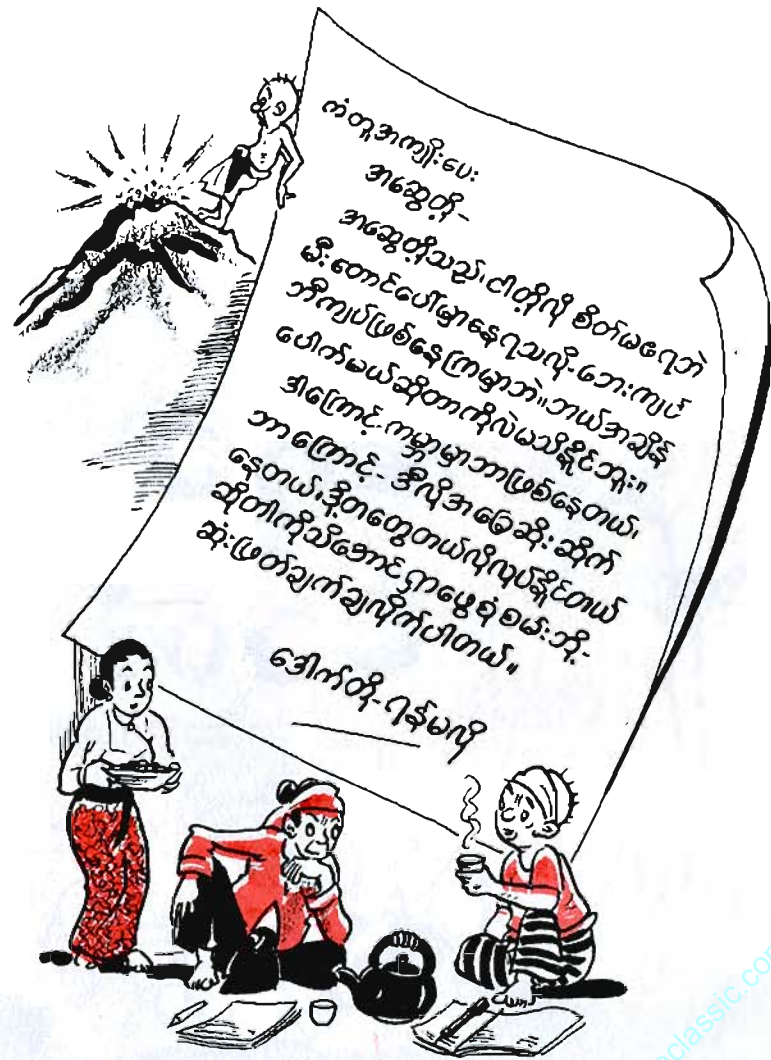 ကံတူအကျိုးပေး
အဆွေတို့-
အဆွေတို့သည်၊ ငါတို့လို စိတ်မရေဘဲ
မီးတောင်ပေါ်မှာနေရသလို-ဘေးကျပ်
ဘီကျပ်ဖြစ်နေကြမှာဘဲ။ ဘယ်အချိန်
ပေါက်မယ်ဆိုတာကိုလဲမသိနိုင်ဘူး။
ဒါကြောင့်-ကမ္ဘာမှာဘာဖြစ်နေတယ်၊
ဘာကြောင့်-ဒီလိုအခြေဆိုးဆိုက်
နေတယ်၊ ဒို့တတွေတယ်လိုလုပ်နိုင်တယ်
ဆိုတာကိုသိအောင် ရှာဖွေစုံစမ်းဘို့-
ဆုံးဖြတ်ချက်ချလိုက်ပါတယ်။
ဒေါက်တို-ရန်မလို